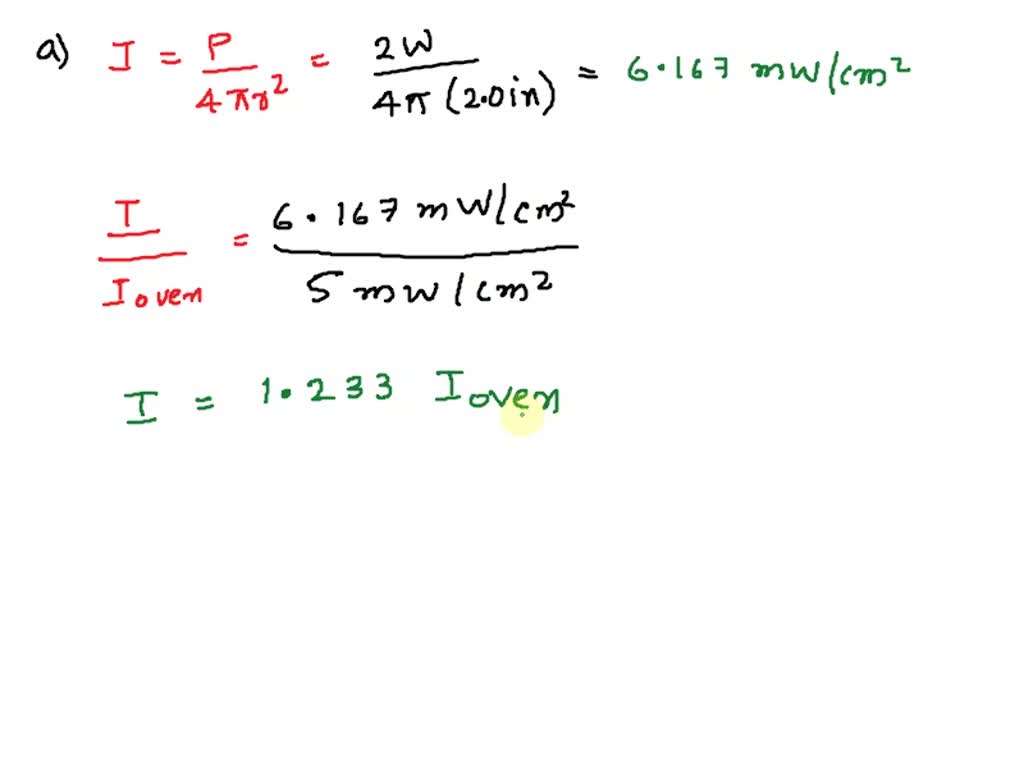 a) I = P / 4πr² = 2W / 4π (2.0in) = 6.167 mW/cm²
I / I oven = 6.167 mW/cm² / 5 mW/cm²
I = 1.233 I oven